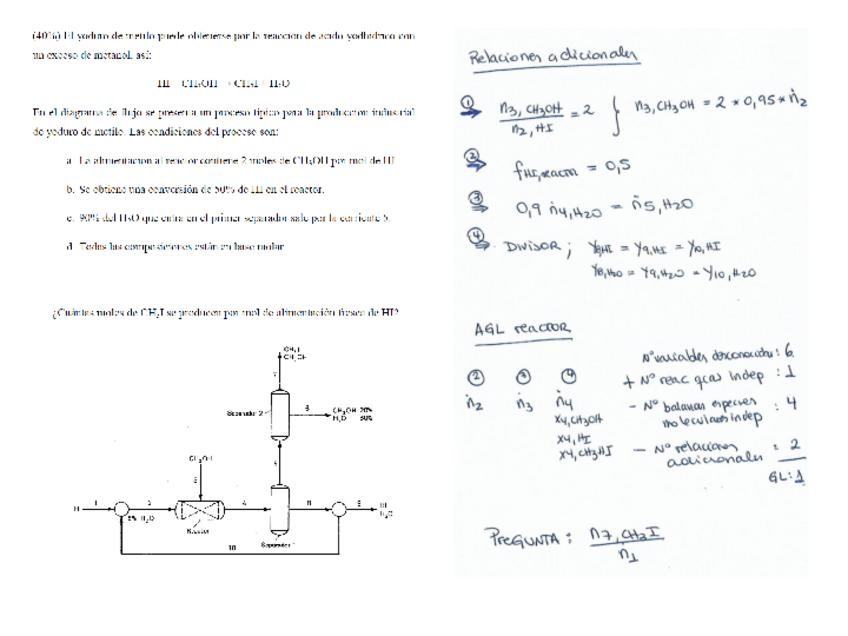 (40%) El yoduro de metilo puede obtenerse por la reacción de ácido yodhídrico con
un exceso de metanol, así:
HI + CH3OH → CH3I + H2O
En el diagrama de flujo se presenta un proceso típico para la producción industrial
de yoduro de metilo. Las condiciones del proceso son:
a. La alimentación al reactor contiene 2 moles de CH3OH por mol de HI
b. Se obtiene una conversión de 50% de HI en el reactor.
c. 90% del H2O que entra en el primer separador sale por la corriente 5.
d. Todas las composiciones están en base molar
¿Cuántas moles de CH3I se producen por mol de alimentación fresca de HI?
CH3I
CH3OH
7
Separador 2
6
CH3OH 20%
H2O 80%
CH3OH
3
HI
1
2
5% H2O
Reactor
4
5
Separador 1
8
9
HI
H2O
10
Relaciones adicionales
① n3,CH3OH / n2,HI = 2 } n3,CH3OH = 2 * 0,95 * ṅ2
② fHI,reactor = 0,5
③ 0,9 ṅ4,H2O = ṅ5,H2O
④ DIVISOR ; y8,HI = y9,HI = y10,HI
y8,H2O = y9,H2O = y10,H2O
AGL reactor
② ③ ④
ṅ2 ṅ3 ṅ4
x4,CH3OH
x4,HI
x4,CH3HI
N° variables desconocidas : 6
+ N° reac qcas indep : 1
- N° balances especies moleculares indep : 4
- N° relaciones adicionales : 2
GL: 1
PREGUNTA : n7,CH3I / ṅ1